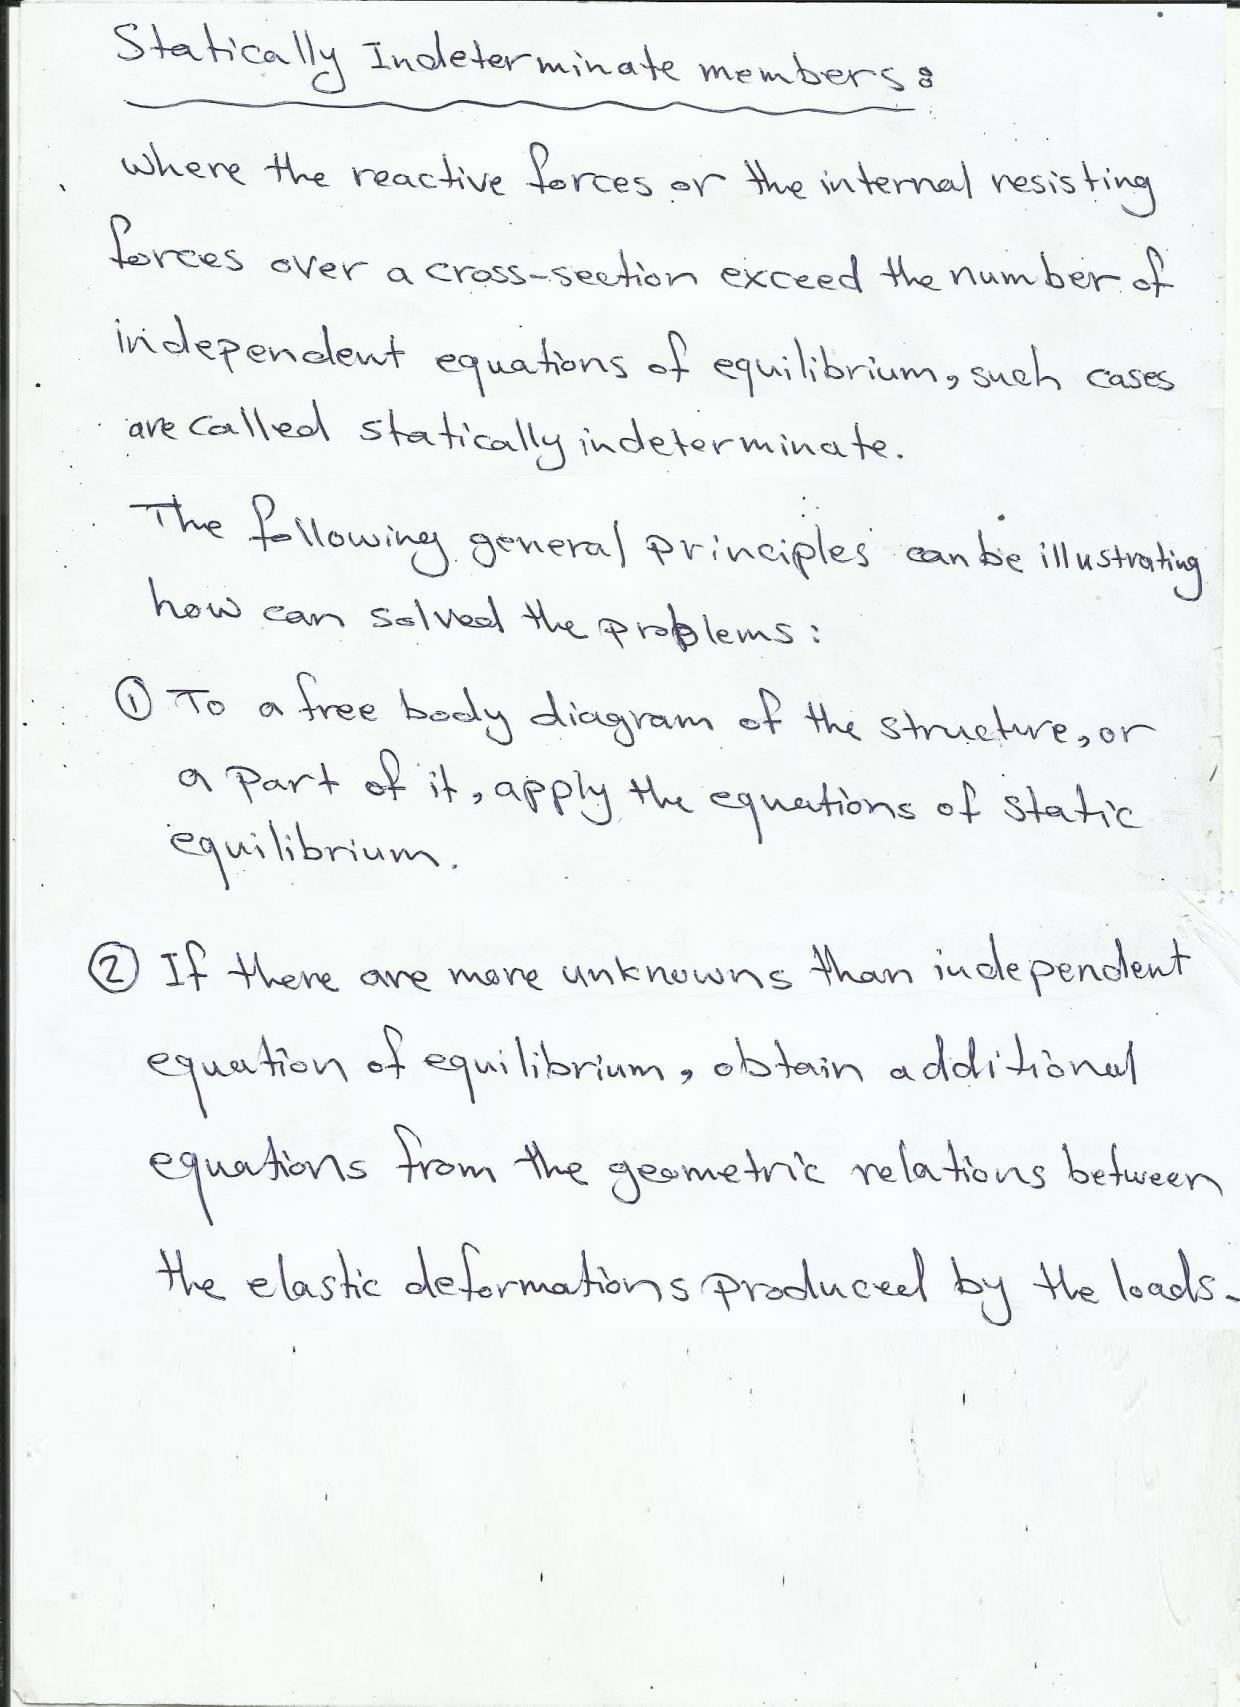 Statically Indeterminate members:
where the reactive forces or the internal resisting
forces over a cross-section exceed the number of
independent equations of equilibrium, such cases
are called statically indeterminate.
The following general principles can be illustrating
how can solved the problems:
① To a free body diagram of the structure, or
a part of it, apply the equations of static
equilibrium.
② If there are more unknowns than independent
equation of equilibrium, obtain additional
equations from the geometric relations between
the elastic deformations produced by the loads.